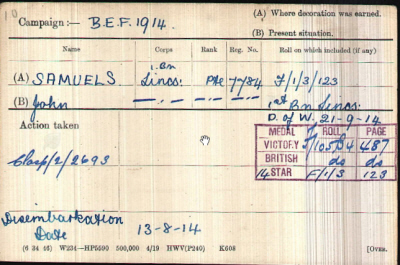 10
Campaign :— B.E.F. 1914.
(A) Where decoration was earned.
(B) Present situation.
Name Corps Rank Reg. No. Roll on which included (if any)
1. Bn
(A) SAMUELS Lincs: Pte 7784 F/1/3/123
(B) John —.— —.— 1st Bn Lincs:
D. of W. 21-9-14
Action taken
MEDAL ROLL PAGE
VICTORY F/105B4 487
BRITISH do do
14 STAR F/1/3 123
Clasp/2/2693
Disembarkation
Date 13-8-14
(6 34 46) W234—HP5590 500,000 4/19 HWV(P240) K608 [OVER.